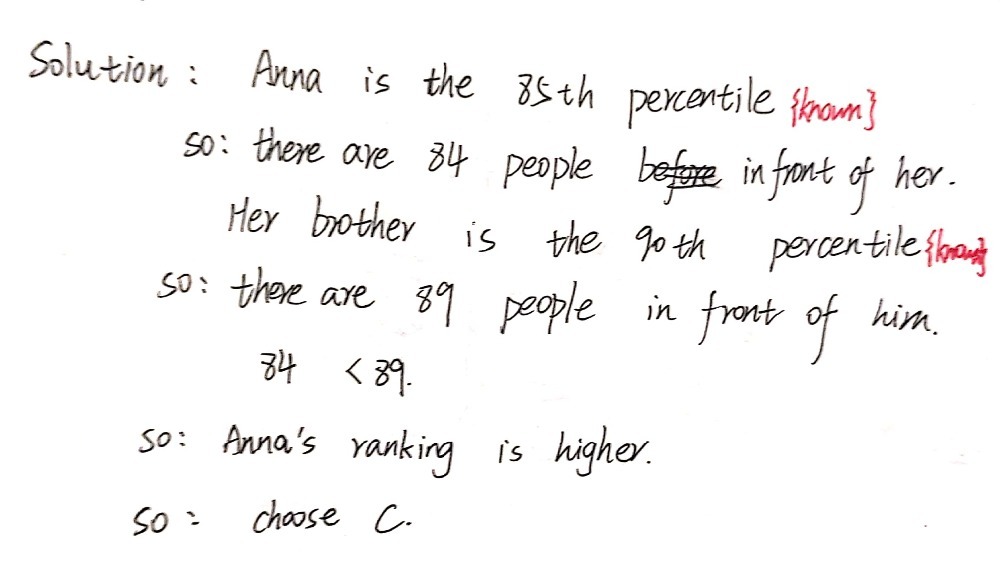 Solution: Anna is the 85th percentile {known}
so: there are 84 people before in front of her.
Her brother is the 90th percentile {known}
so: there are 89 people in front of him.
84 < 89.
so: Anna's ranking is higher.
so: choose C.